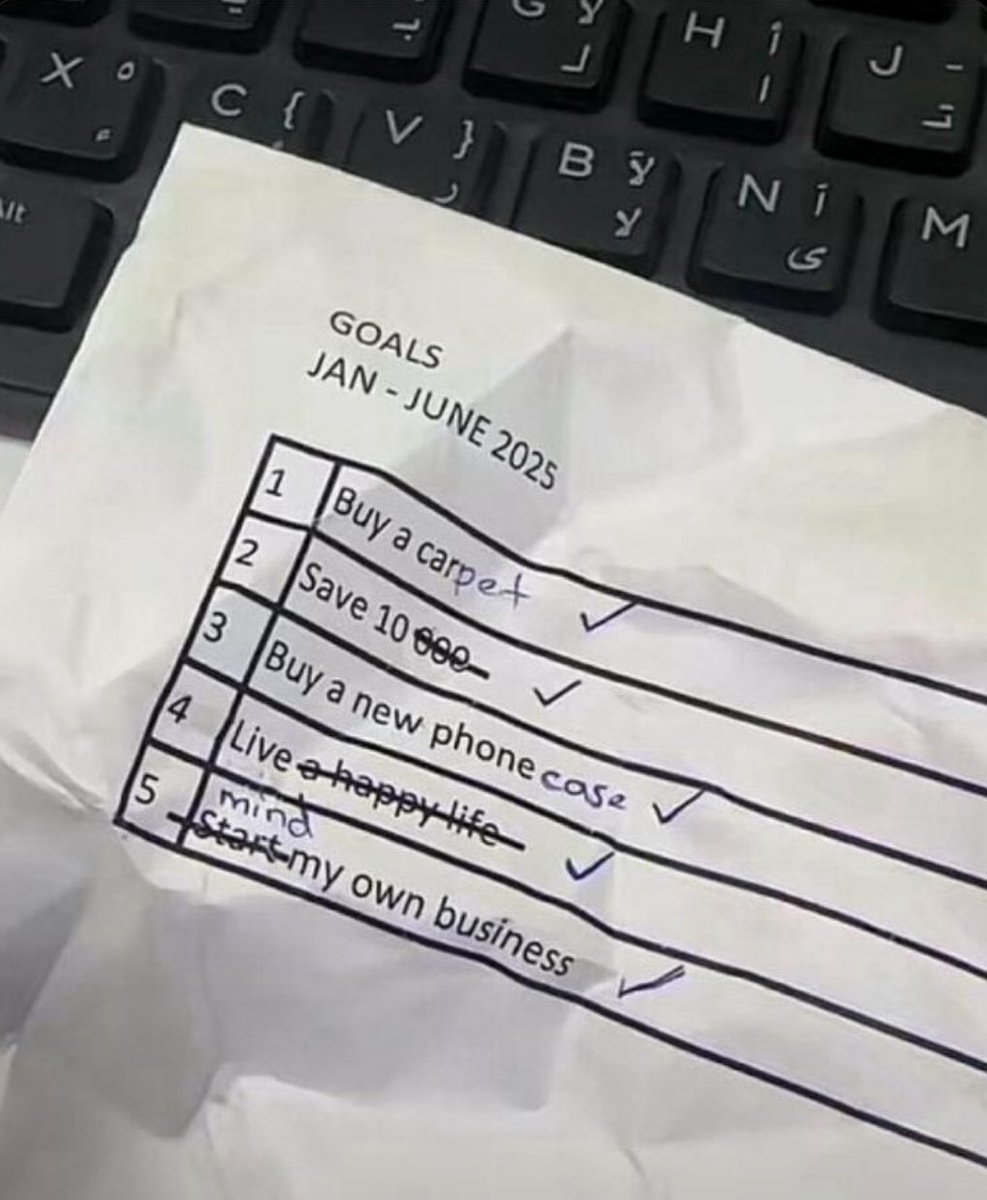 G لأ
ل
H أ
ا
J ـ
ت
X ْ
ء
C {
V }
ر
B لآ
لا
N آ
ى
M
Alt
GOALS
JAN - JUNE 2025
1 Buy a carpet ✓
2 Save 10 000 ✓
3 Buy a new phone case ✓
4 Live a happy life ✓
mind
5 Start my own business ✓